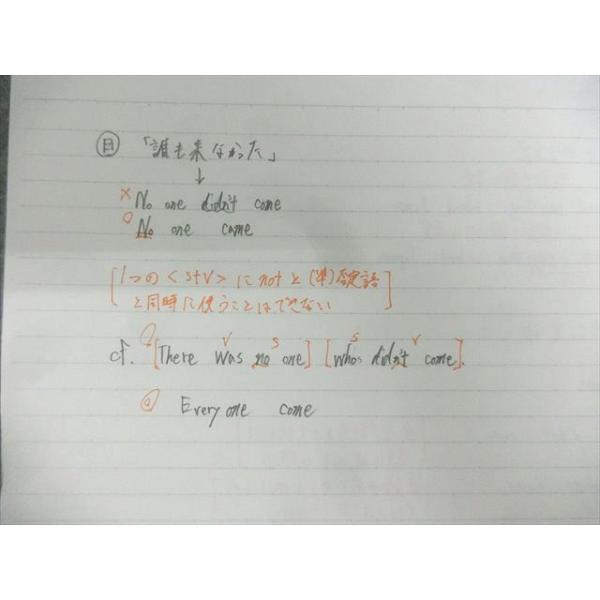 日 「誰も来なかった」
↓
× No one didn't come
○ No one came
[1つの<S+V>にnotと(準)否定語
と同時に使うことはできない]
V S S V
cf. [There was no one] [who didn't come].
Every one come